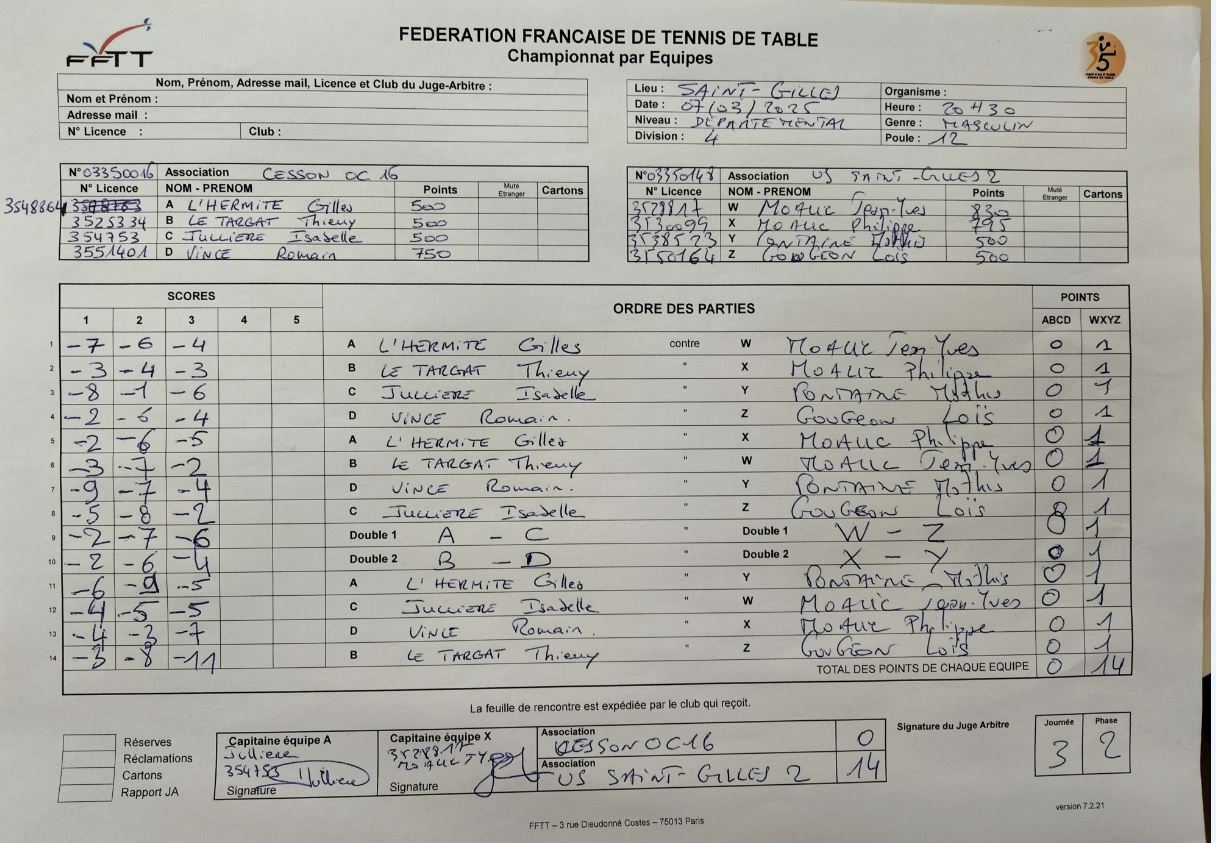 FFTT
FEDERATION FRANCAISE DE TENNIS DE TABLE
Championnat par Equipes
Nom, Prénom, Adresse mail, Licence et Club du Juge-Arbitre :
Nom et Prénom :
Adresse mail :
N° Licence : Club :
Lieu : SAINT-GILLES Organisme :
Date : 07/03/2025 Heure : 20H30
Niveau : DEPARTEMENTAL Genre : MASCULIN
Division : 4 Poule : 12
N° 03350016 Association CESSON OC 16
N° Licence NOM - PRENOM Points Muté Etranger Cartons
3548864 A L'HERMITE Gilles 500
3525334 B LE TARGAT Thierry 500
354753 C JULLIERE Isabelle 500
3551401 D VINCE Romain 750
N° 03350148 Association US SAINT-GILLES 2
N° Licence NOM - PRENOM Points Muté Etranger Cartons
3528817 W MOALIC Jean-Yves 830
3530099 X MOALIC Philippe 795
3538523 Y FONTAINE Mathis 500
3550164 Z GOUGEON Loïs 500
SCORES ORDRE DES PARTIES POINTS
1 2 3 4 5 ABCD WXYZ
1 -7 -6 -4 A L'HERMITE Gilles contre W MOALIC Jean Yves 0 1
2 -3 -4 -3 B LE TARGAT Thierry " X MOALIC Philippe 0 1
3 -8 -1 -6 C JULLIERE Isabelle " Y FONTAINE Mathis 0 1
4 -2 -6 -4 D VINCE Romain. " Z GOUGEON Loïs 0 1
5 -2 -6 -5 A L'HERMITE Gilles " X MOALIC Philippe 0 1
6 -3 -7 -2 B LE TARGAT Thierry " W MOALIC Jean-Yves 0 1
7 -9 -7 -4 D VINCE Romain. " Y FONTAINE Mathis 0 1
8 -5 -8 -2 C JULLIERE Isabelle " Z GOUGEON Loïs 0 1
9 -2 -7 -6 Double 1 A - C " Double 1 W - Z 0 1
10 -2 -6 -4 Double 2 B - D " Double 2 X - Y 0 1
11 -6 -9 -5 A L'HERMITE Gilles " Y FONTAINE Mathis 0 1
12 -4 -5 -5 C JULLIERE Isabelle " W MOALIC Jean-Yves 0 1
13 -4 -3 -7 D VINCE Romain. " X MOALIC Philippe 0 1
14 -3 -8 -11 B LE TARGAT Thierry " Z GOUGEON Loïs 0 1
TOTAL DES POINTS DE CHAQUE EQUIPE 0 14
La feuille de rencontre est expédiée par le club qui reçoit.
Réserves
Réclamations
Cartons
Rapport JA
Capitaine équipe A
Julliere
354753
Signature
Capitaine équipe X
3528817
MOALIC JY
Signature
Association
CESSON OC16 0
Association
US SAINT-GILLES 2 14
Signature du Juge Arbitre
Journée Phase
3 2
version 7.2.21
FFTT – 3 rue Dieudonné Costes – 75013 Paris